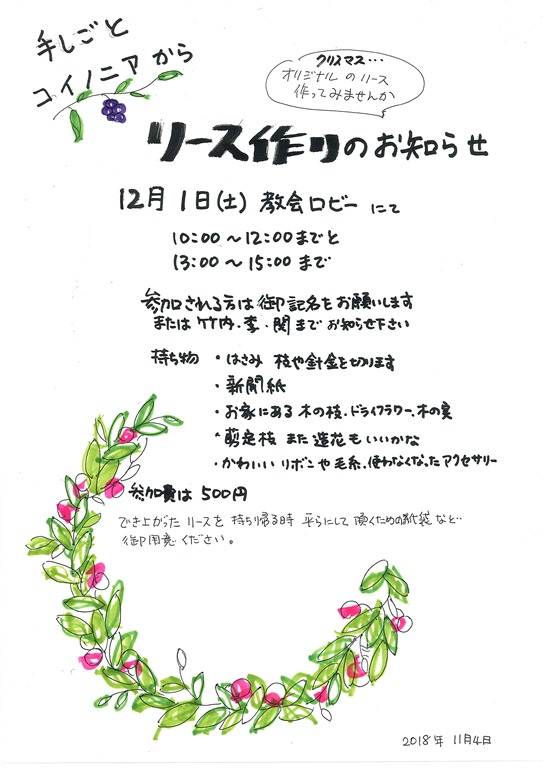 手しごと
コイノニア から
クリスマス…
オリジナル の リース
作ってみませんか
リース作りのお知らせ
12月 1日(土) 教会ロビー にて
10:00 〜 12:00までと
13:00 〜 15:00 まで
参加される方は 御記名をお願いします
または 竹内・李・関まで お知らせ下さい
持ち物 ・はさみ 枝や針金を切ります
・新聞紙
・お家にある 木の枝・ドライフラワー、木の実
・剪定枝 また 造花も いいかな
・かわいい リボンや 毛糸、使わなくなった アクセサリー
参加費は 500円
でき上がった リースを 持ち帰る時 平らにして 頂くための紙袋 など…
御用意 ください。
2018年 11月4日